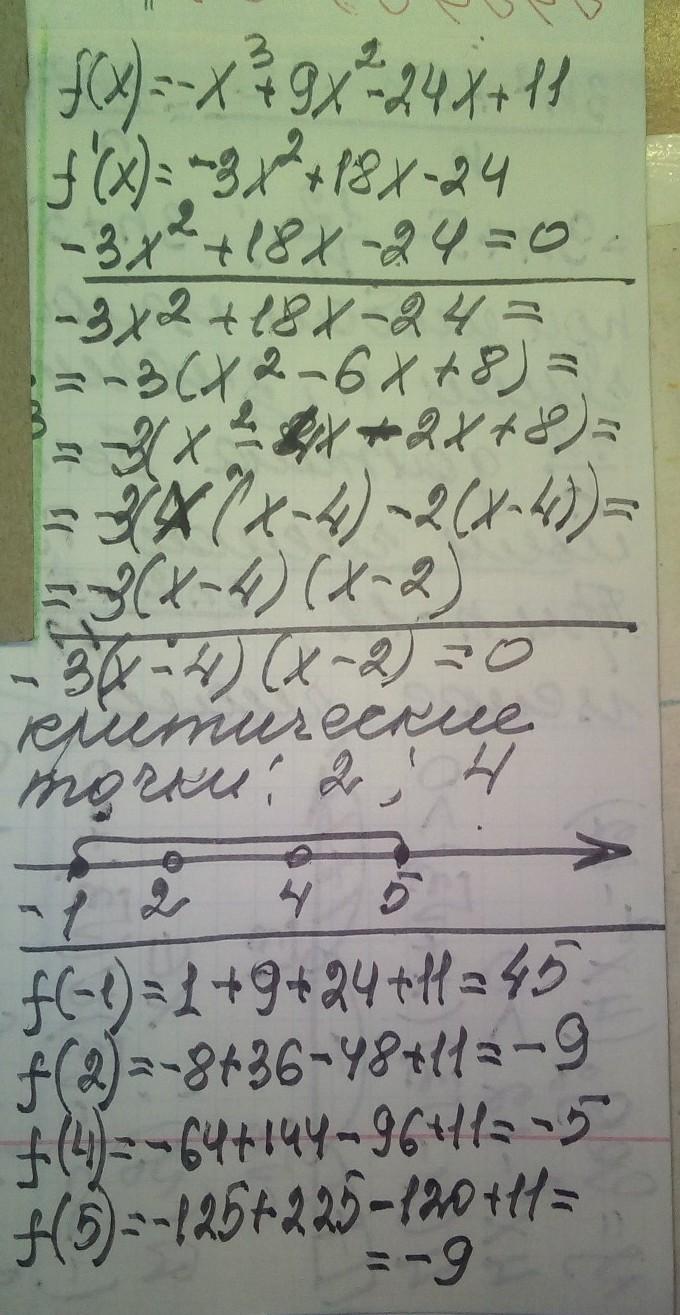 f(x)=-x³+9x²-24x+11
f'(x)=-3x²+18x-24
-3x²+18x-24=0
-3x²+18x-24=
=-3(x²-6x+8)=
=-3(x²-4x-2x+8)=
=-3(x(x-4)-2(x-4))=
=-3(x-4)(x-2)
-3(x-4)(x-2)=0
критические
точки: 2; 4
-1 2 4 5
f(-1)=1+9+24+11=45
f(2)=-8+36-48+11=-9
f(4)=-64+144-96+11=-5
f(5)=-125+225-120+11=
=-9